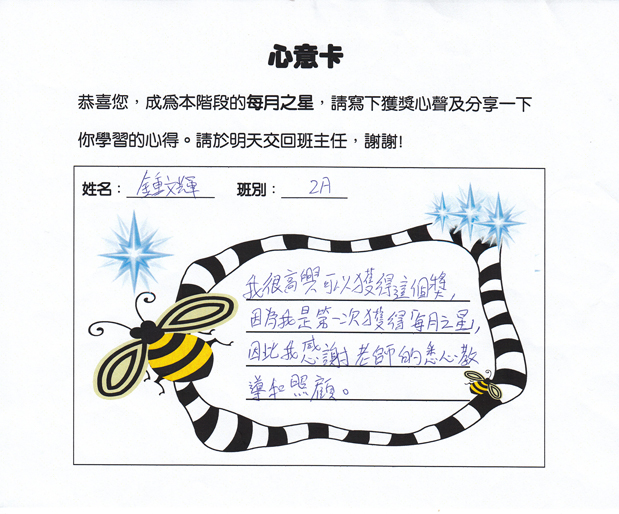 心意卡
恭喜您，成為本階段的每月之星，請寫下獲獎心聲及分享一下
你學習的心得。請於明天交回班主任，謝謝!
姓名： 鍾文輝 班別： 2A
我很高興可以獲得這個獎，
因為我是第一次獲得「每月之星」，
因此我感謝老師的悉心教
導和照顧。